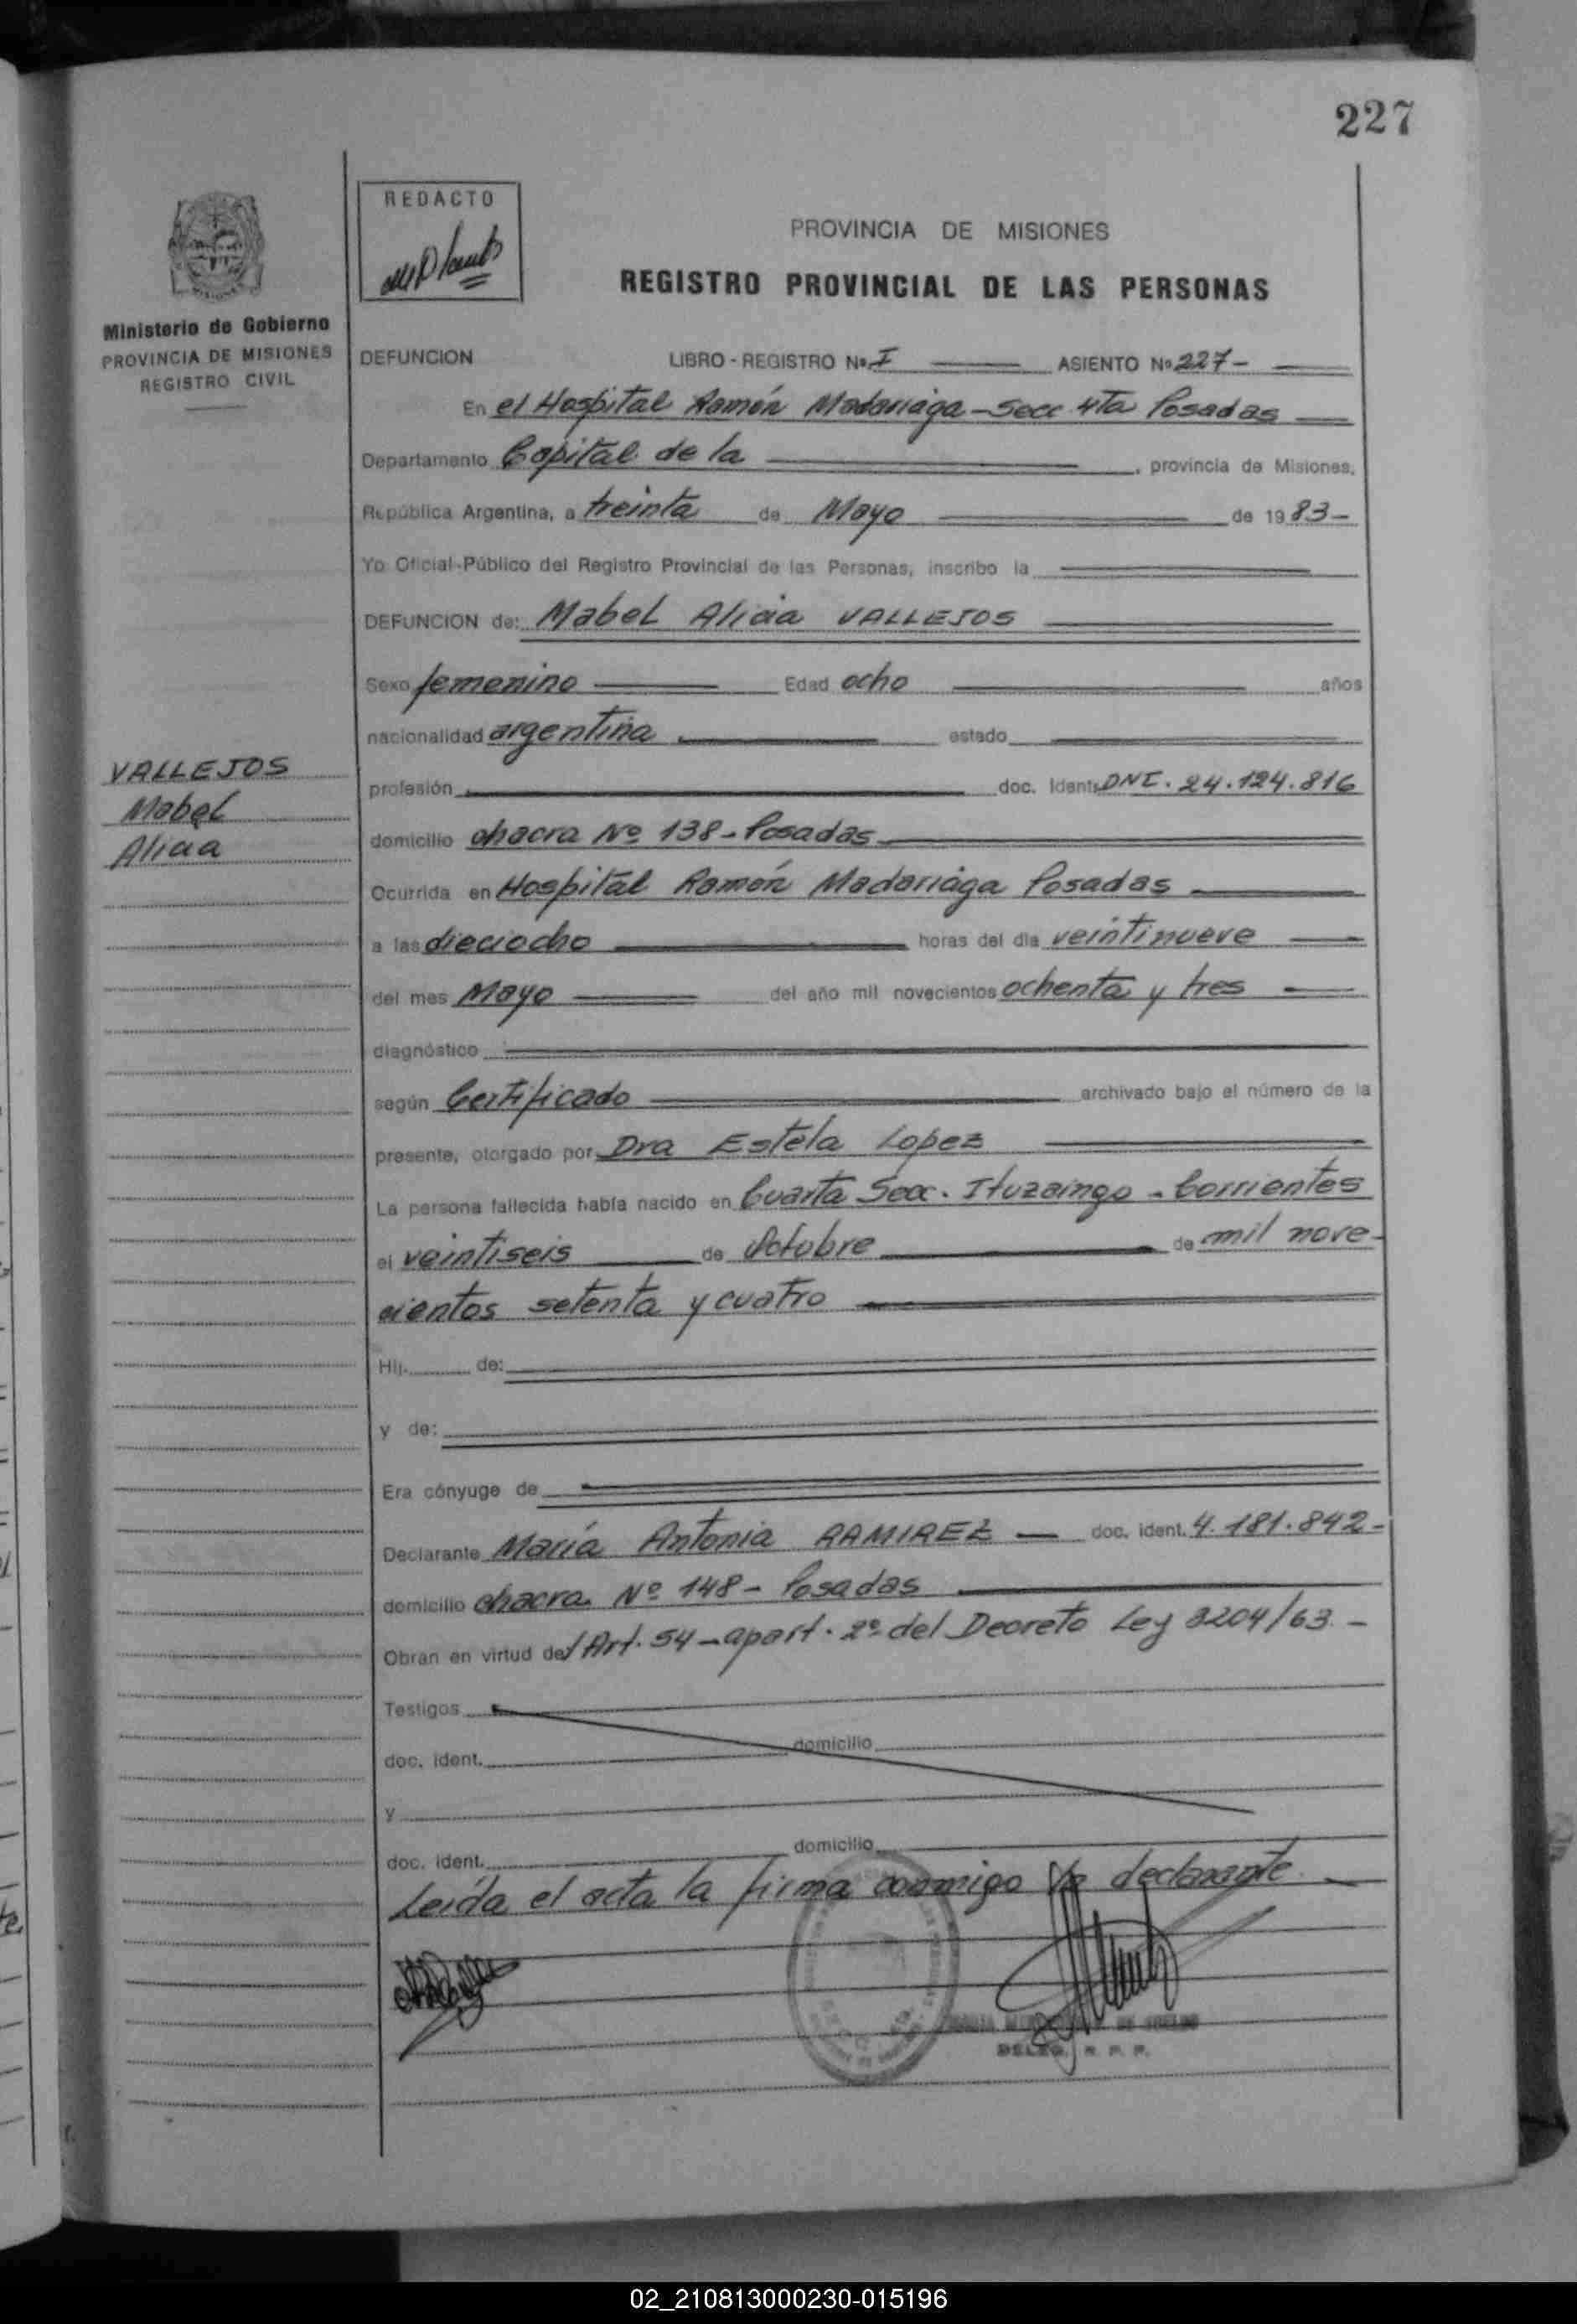 227
REDACTO
PROVINCIA DE MISIONES
REGISTRO PROVINCIAL DE LAS PERSONAS
Ministerio de Gobierno
PROVINCIA DE MISIONES
REGISTRO CIVIL
DEFUNCION LIBRO - REGISTRO Nº I ASIENTO Nº 227-
En el Hospital Ramón Madariaga - Secc 4ta Posadas
Departamento Capital de la , provincia de Misiones,
República Argentina, a treinta de Mayo de 1983-
Yo Oficial Público del Registro Provincial de las Personas, inscribo la
DEFUNCION de: Mabel Alicia VALLEJOS
Sexo femenino Edad ocho años
nacionalidad argentina estado
VALLEJOS
Mabel
Alicia
profesión doc. Ident. DNI. 24.124.816
domicilio chacra Nº 138 - Posadas
Ocurrida en Hospital Ramón Madariaga Posadas
a las dieciocho horas del día veintinueve
del mes Mayo del año mil novecientos ochenta y tres
diagnóstico
según Certificado archivado bajo el número de la
presente, otorgado por Dra Estela Lopez
La persona fallecida había nacido en Cuarta Secc. Ituzaingo - Corrientes
el veintiseis de Octubre de mil nove-
cientos setenta y cuatro
Hij. de:
y de:
Era cónyuge de
Declarante María Antonia RAMIREZ doc. ident. 4.181.842-
domicilio chacra Nº 148 - Posadas
Obran en virtud del Art. 54 - apart. 2º del Decreto Ley 8204/63.-
Testigos
doc. ident. domicilio
y
doc. ident. domicilio
Leída el acta la firma conmigo la declarante.
DELEG. R. P. P.
02_210813000230-015196